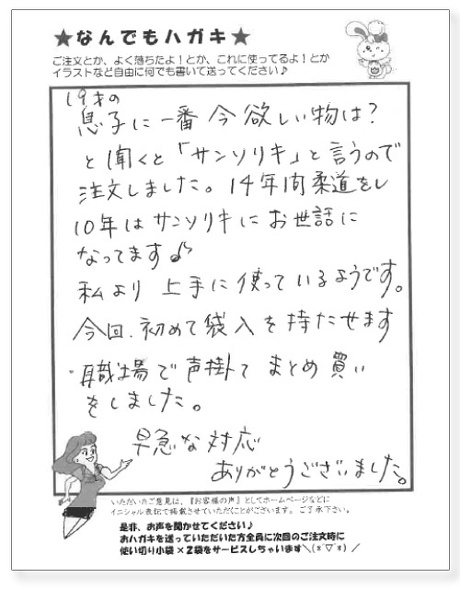 ★なんでもハガキ★
ご注文とか、よく落ちたよ!とか、これに使ってるよ!とか
イラストなど自由に何でも書いて送ってください♪
19才の
息子に一番今欲しい物は?
と聞くと「サンソリキ」と言うので
注文しました。14年間柔道をし
10年はサンソリキにお世話に
なってます♪
私より上手に使っているようです。
今回、初めて袋入を持たせます
・職場で声掛てまとめ買い
をしました。
早急な対応
ありがとうございました。
いただいたご意見は、『お客様の声』としてホームページなどに
イニシャル表記で掲載させていただくことがございます。ご了承下さい。
是非、お声を聞かせてください♪
おハガキを送っていただいた方全員に次回のご注文時に
使い切り小袋×2袋をサービスしちゃいます＼(*^▽^*)／